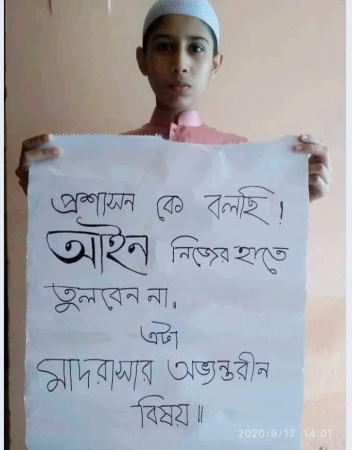 প্রশাসন কে বলছি!
আইন নিজের হাতে
তুলবেন না॥
এটা
মাদরাসার অভ্যন্তরীন
বিষয়॥
2020/9/17 14:01